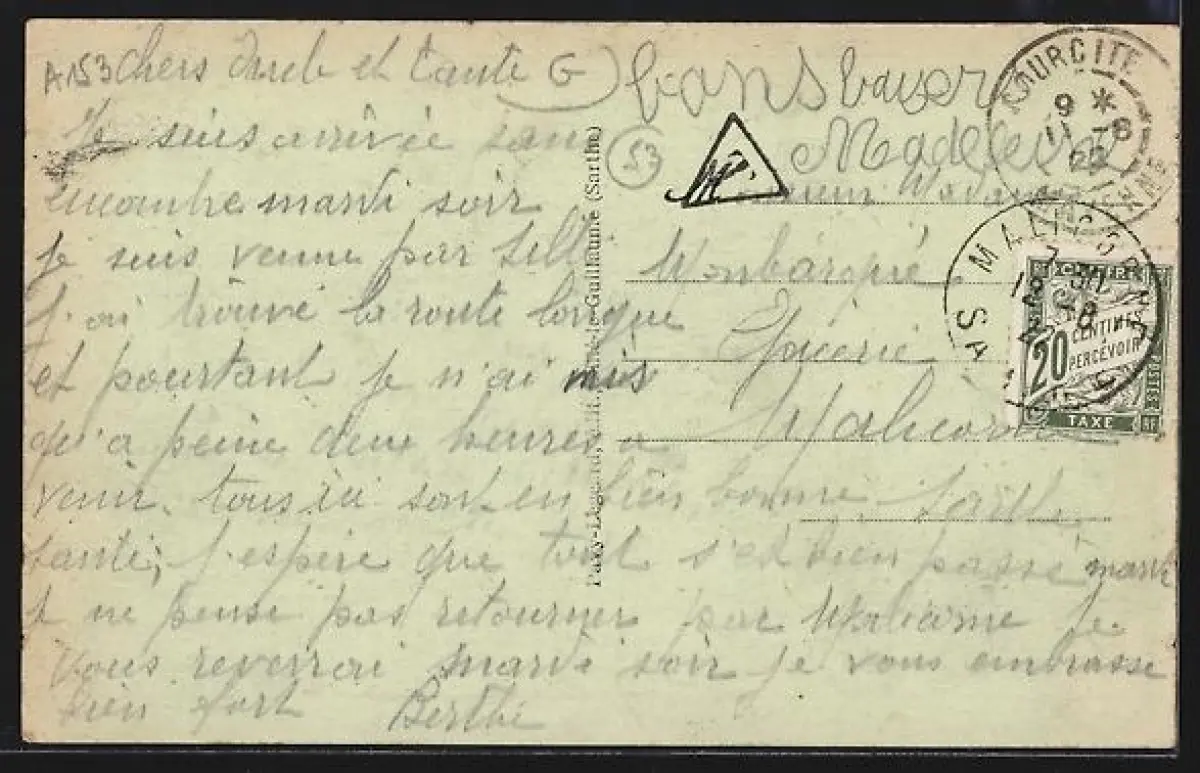 A153 Chers Oncle et Tante G
Je suis arrivée sans
encombre mardi soir
je suis venue par Sillé
j'ai trouvé la route longue
et pourtant je n'ai mis
qu'a peine deux heures a
venir. tous ici sont en bien bonne
santé, j'espère que tout s'est bien passé mardi
je ne pense pas retourner par Malicorne je
vous reverrai mardi soir je vous embrasse
bien fort Berthe
bons baisers
Madeleine
53
T
Monsieur Madame
Épicerie
Malicorne
Sarthe
Guillaume (Sarthe)
COURCITE
9 *
11 -8
22
MAYENNE
MALICORNE
SARTHE
CHIFFRE
20 CENTIMES
A PERCEVOIR
POSTES
TAXE
RF